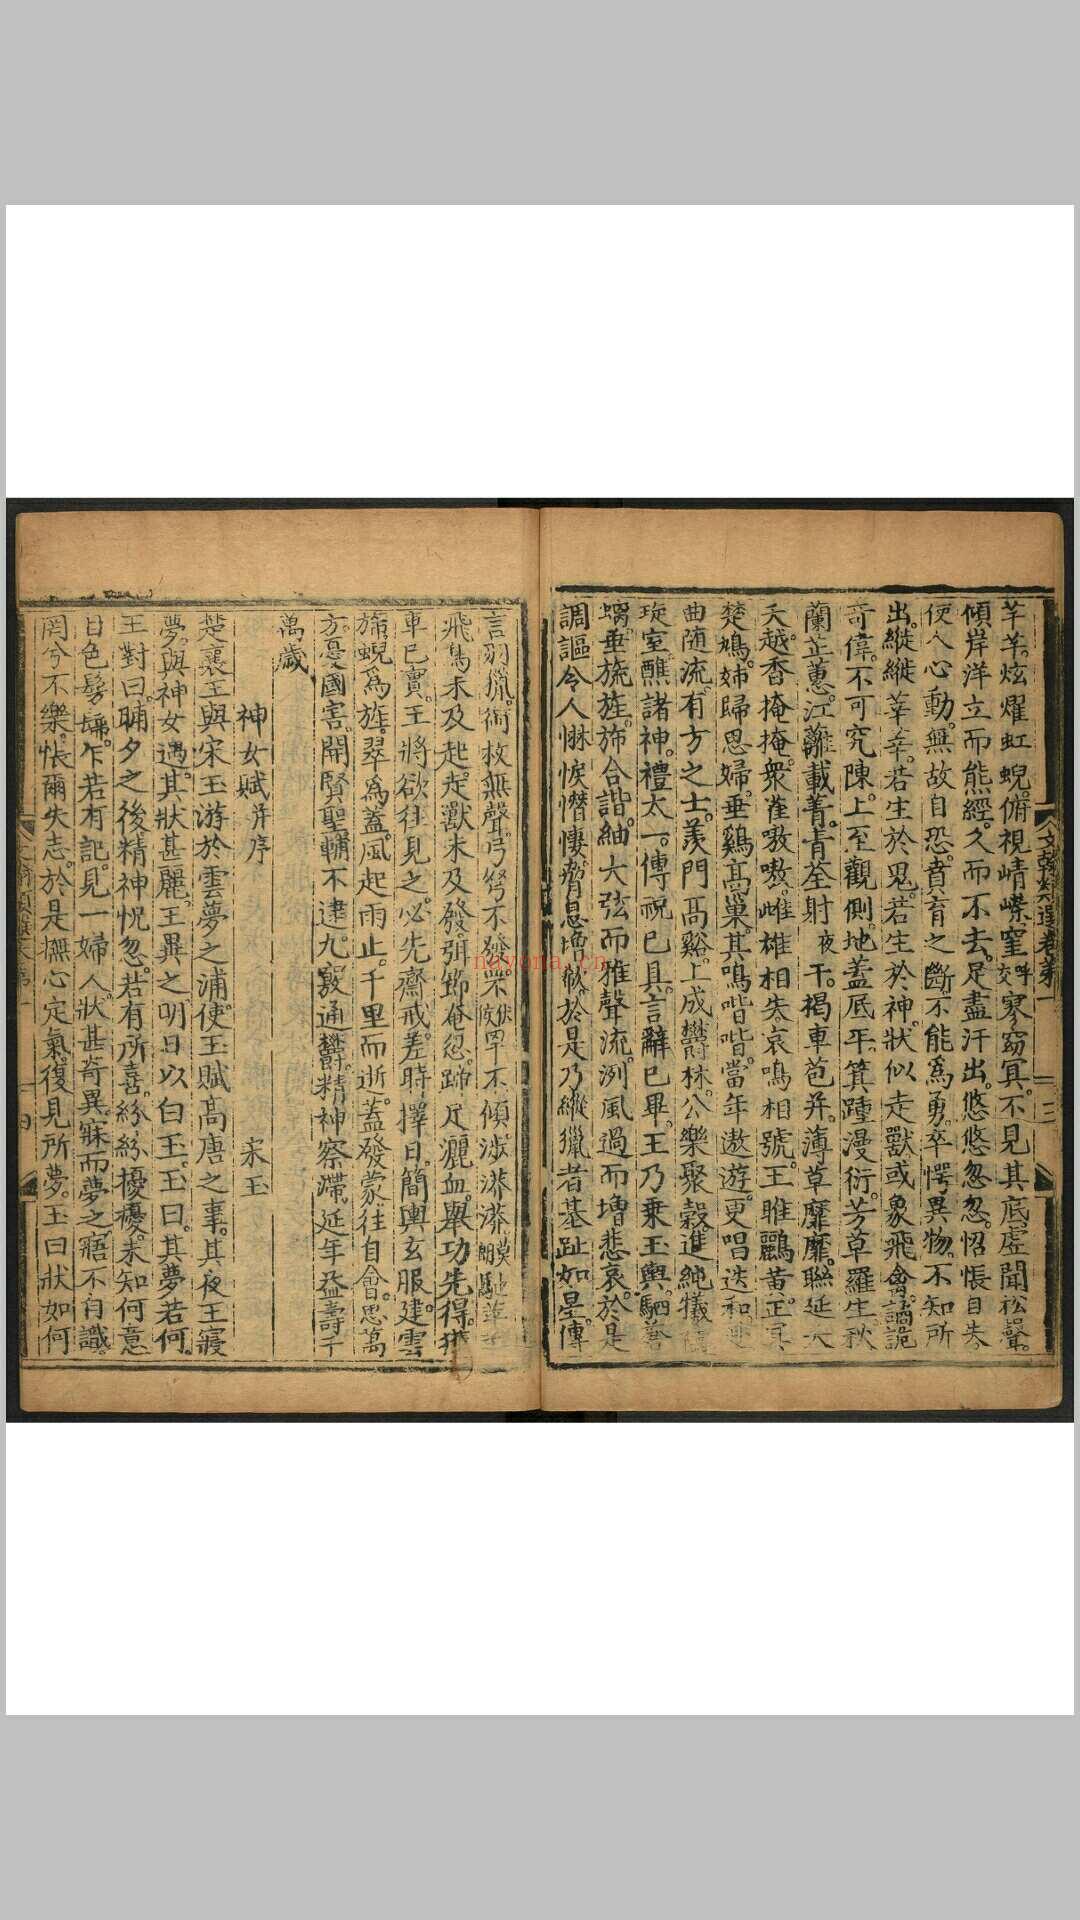 芊芊炫燿虹蜺俯視崝嶸窐呼交寥窈冥不見其底虛聞松聲
傾岸洋立而熊經久而不去足盡汗出悠悠忽忽怊悵自失
使人心動無故自恐賁育之斷不能為勇卒愕異物不知所
出縱縱莘莘若生於鬼若生於神狀似走獸或象飛禽譎詭
奇偉不可究陳上至觀側地蓋底平箕踵漫衍芳草羅生秋
蘭芷蕙江蘺載菁青荃射夜干揭車苞并薄草靡靡聯延夭
夭越香掩掩衆雀嗷嗷雌雄相失哀鳴相號王雎鸝黃正冥
楚鳩姊歸思婦垂鷄高巢其鳴喈喈當年遨遊更唱迭和
曲随流有方之士羨門高谿上成鬱林公樂聚穀進純犧
琁室醮諸神禮太一傳祝已具言辭已畢王乃乗玉輿駟蒼
螭垂旒旌斾合諧紬大弦而雅聲流洌風過而增悲哀於是
調謳令人惏悷憯悽脅息增欷於是乃縱獵者基趾如星傳
言羽獵銜枚無聲弓弩不發罘罕不傾涉漭漭馳苹苹
飛鳥未及起走獸未及發弭節奄忽蹄足灑血舉功先得獲
車已實王將欲往見之必先齋戒差時擇日簡輿玄服建雲
斾蜺為旌翠為蓋風起雨止千里而逝蓋發蒙往自會思萬
方憂國害開賢聖輔不逮九竅通鬱精神察滯延年益壽千
萬歲
神女賦并序 宋玉
楚襄王與宋玉游於雲夢之浦使玉賦高唐之事其夜王寢
夢與神女遇其狀甚麗王異之明日以白玉玉曰其夢若何
王對曰晡夕之後精神怳忽若有所喜紛紛擾擾未知何意
目色髣髴乍若有記見一婦人狀甚奇異寐而夢之寤不自識
罔兮不樂悵爾失志於是撫心定氣復見所夢玉曰狀如何
文翰類選卷第一
三
nayona.cn